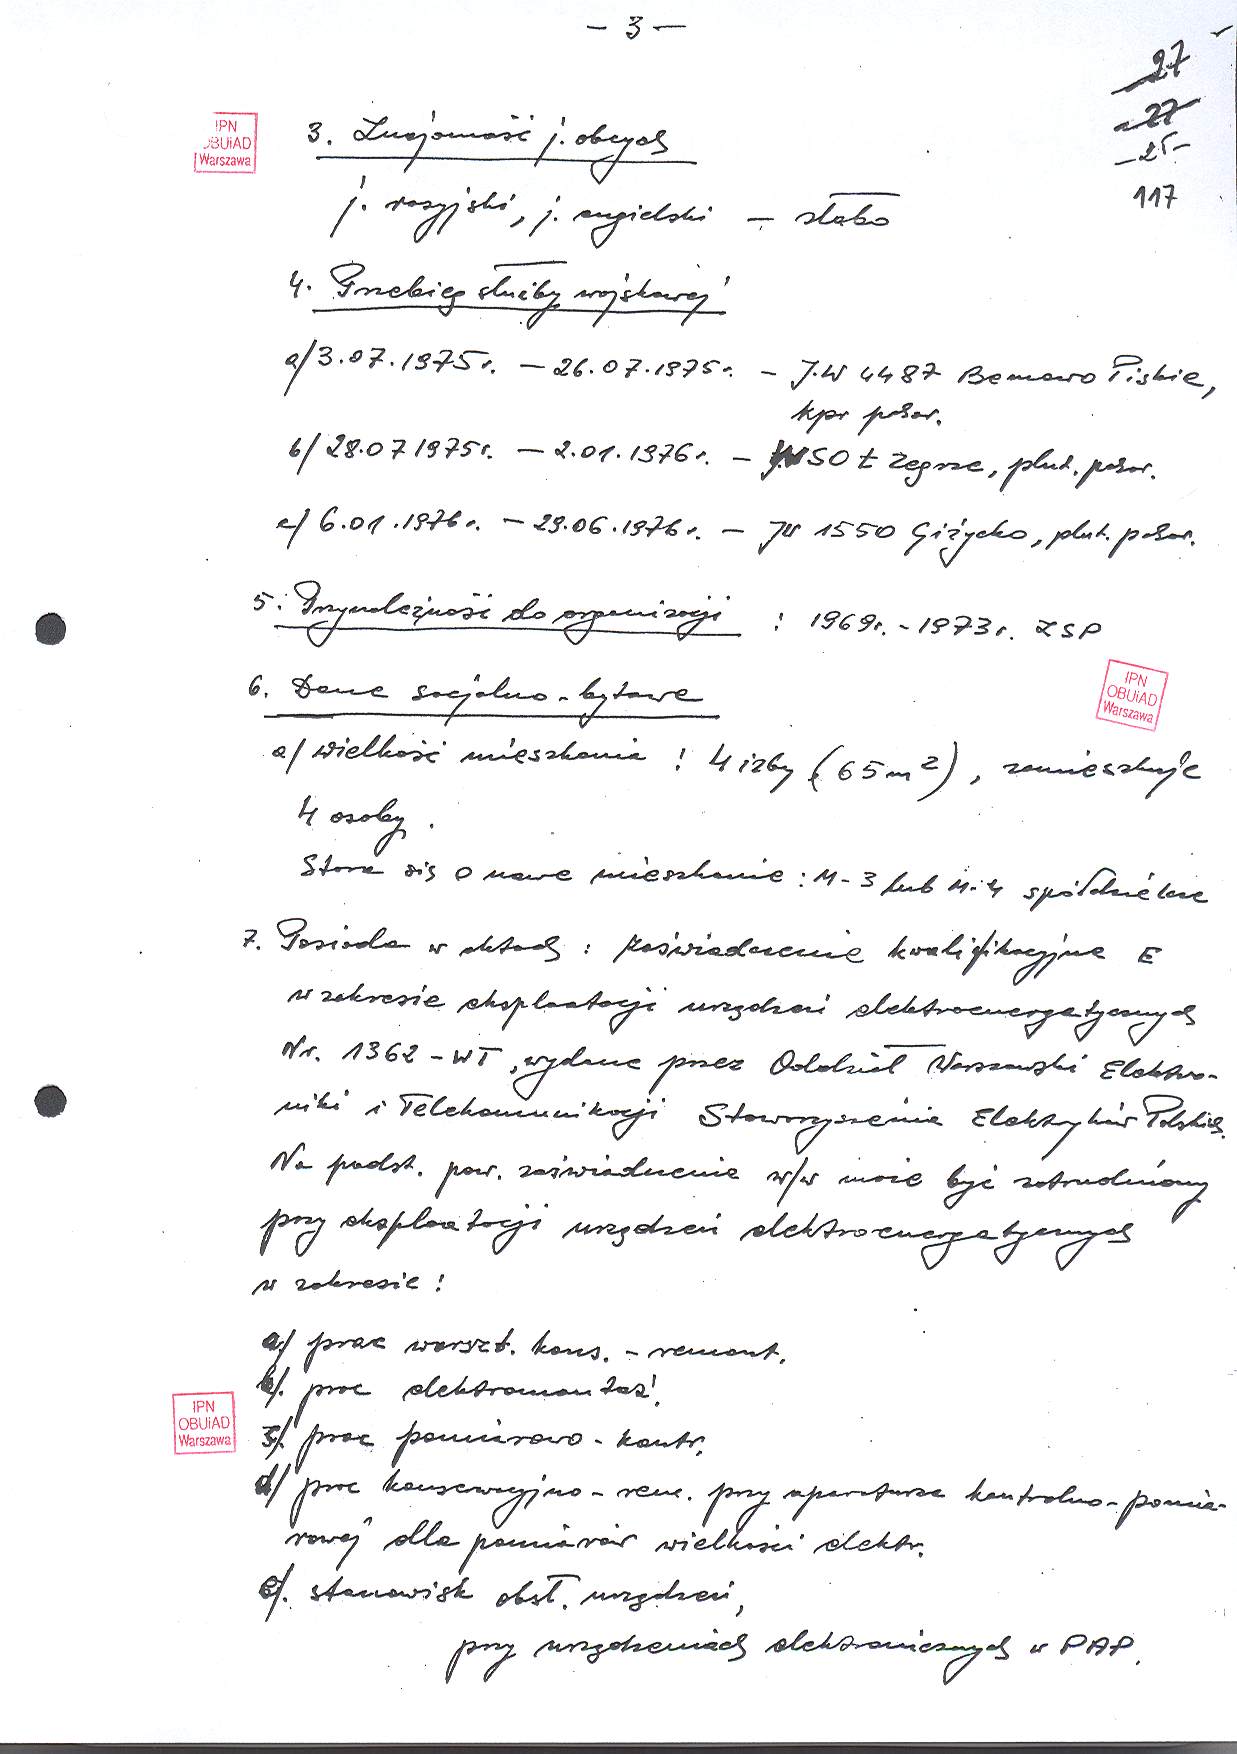 — 3 —
27
27
25
117
IPN
OBUiAD
Warszawa
3. Znajomość j. obcych
j. rosyjski, j. angielski — słabo
4. Przebieg służby wojskowej
a/ 3.07.1975r. — 26.07.1975r. — J.W 4487 Bemowo Piskie,
kpr podchor.
b/ 28.07 1975r. — 2.01.1976r. — WSOŁ Zegrze, plut. podchor.
c/ 6.01.1976r. — 29.06.1976r. — JW 1550 Giżycko, plut. podchor.
5. Przynależność do organizacji : 1969r. - 1973r. ZSP
IPN
OBUiAD
Warszawa
6. Dane socjalno - bytowe
a/ wielkość mieszkania : 4 izby (65 m²), zamieszkuje
4 osoby.
Stara się o nowe mieszkanie : M-3 lub M-4 spółdzielcze
7. Posiada w aktach : zaświadczenie kwalifikacyjne E
w zakresie eksploatacji urządzeń elektroenergetycznych
Nr. 1362 - WT, wydane przez Oddział Warszawski Elektro-
niki i Telekomunikacji Stowarzyszenia Elektryków Polskich.
Na podst. pow. zaświadczenia w/w może być zatrudniony
przy eksploatacji urządzeń elektroenergetycznych
w zakresie :
a/ prac warszt. kons. - remont.
b/. prac elektromontaż.
IPN
OBUiAD
Warszawa
c/. prac pomiarowo - kontr.
d/ prac konserwacyjno - rem. przy aparaturze kontrolno - pomia-
rowej dla pomiarów wielkości elektr.
e/. stanowisk obsł. urządzeń,
przy urządzeniach elektronicznych w PAP.